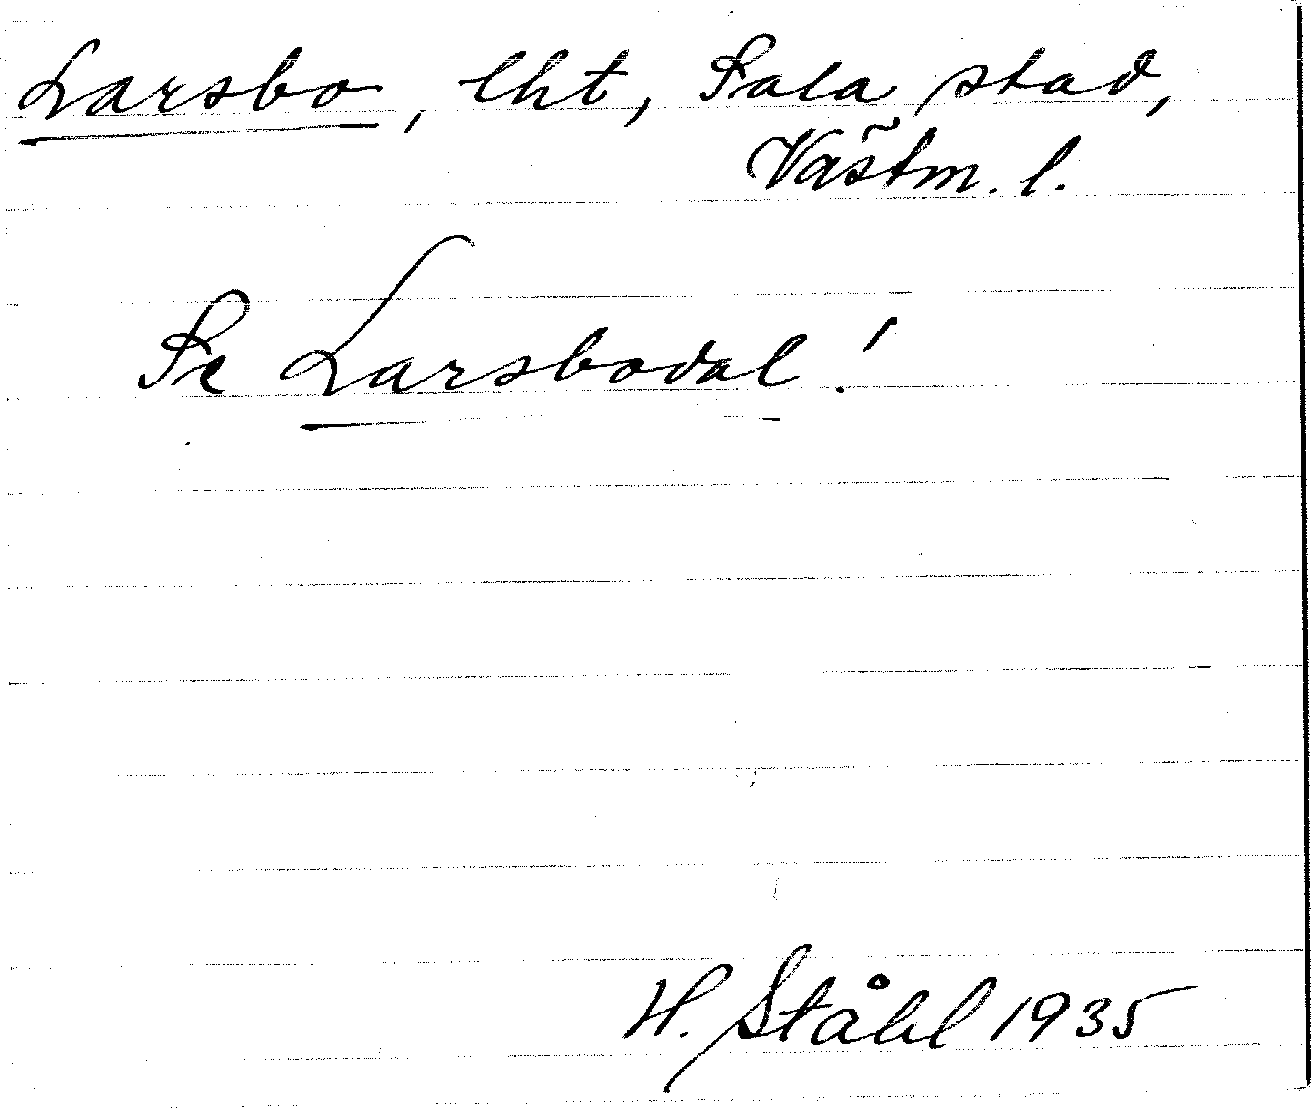 Larsbo, lht, Sala stad,
Västm. l.
Se Larsbodal!
H. Ståhl 1935